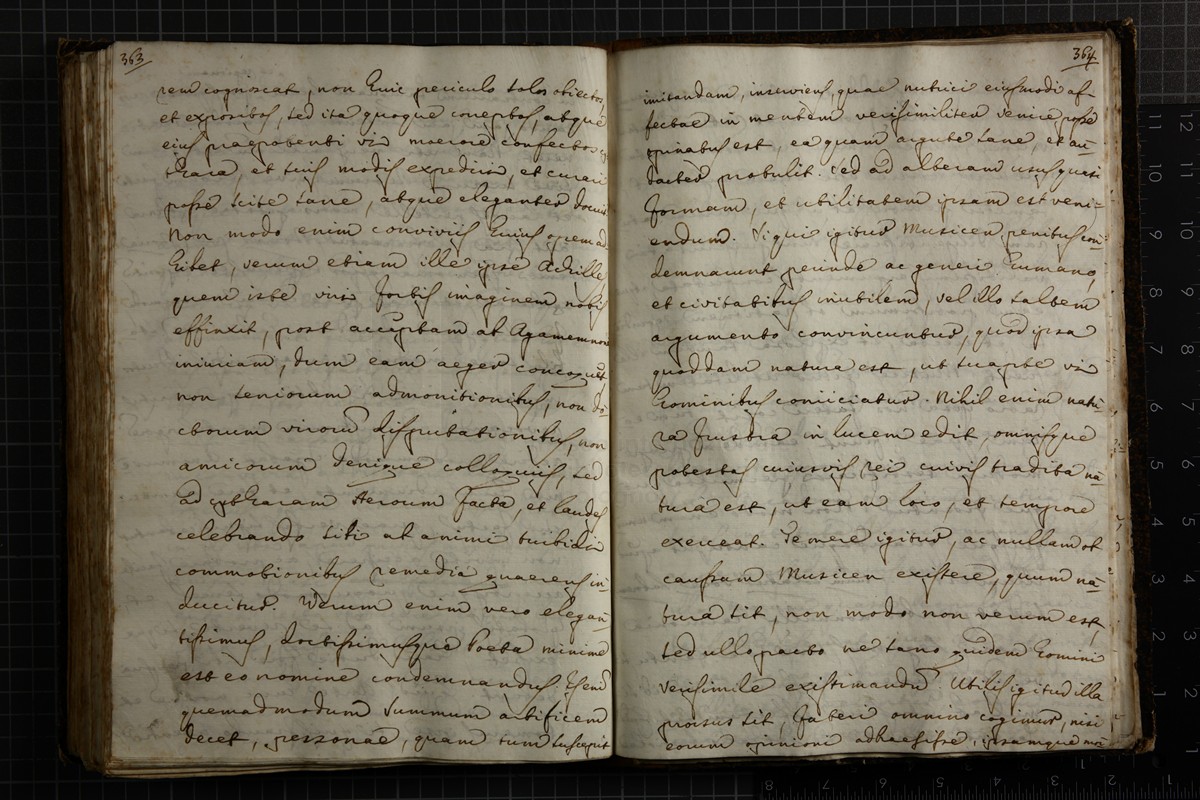 363
rem cognoscat, non huic periculo solos obiectos,
et expositos, sed ita quoque conceptos, atque
eius praepotenti vis moerore confectos
thara, et suis modis expediri, et curari
posse scite sane, atque eleganter docuit.
Non modo enim conviviis huius opem ad
hibet, verum etiam ille ipse Achilles
quem iste viri fortis imaginem nobis
effinxit, post acceptam ab Agamemnone
iniuriam, dum eam aeger concoquit,
non seniorum admonitionibus, non do=
ctorum virorum disputationibus, non
amicorum denique colloquiis, sed
ad cytharam Heroum facta, et laudes
celebrando sibi ab animi turbidis
commotionibus remedia quaerens in=
ducitur. Verum enim vero elegan=
tissimus, doctissimusque Poeta minime
est eo nomine condemnandus. Etenim
quemadmodum summum artificem
decet, personae, quam tum suscepit
364
imitandam, inserviens, quae nutrici eiusmodi af
fectae in mentem verisimiliter venire posse
opinatus est, ea quam argute sane, et au=
dacter protulit. Sed ad alteram usus quasi
formam, et utilitatem ipsam est veni=
endum. Siqui igitur Musicen penitus con
demnarunt perinde ac generi humano,
et civitatibus inutilem, vel illo saltem
argumento convincuntur, quod ipsa
quoddam natura est, ut suapte vi
hominibus coniiciatur. Nihil enim natu=
ra frustra in lucem edit, omnisque
potestas cuiusvis rei cuivis tradita na=
tura est, ut eam loco, et tempore
exerceat. Temere igitur, ac nullam ob
caussam Musicen existere, quum na=
tura sit, non modo non verum est,
sed ullo pacto ne sano quidem homini
verisimile existimandum. Utilis igitur illa
prorsus sit, fateri omnino cogimur, nisi
eorum opinioni adhaesisse, ipsamque